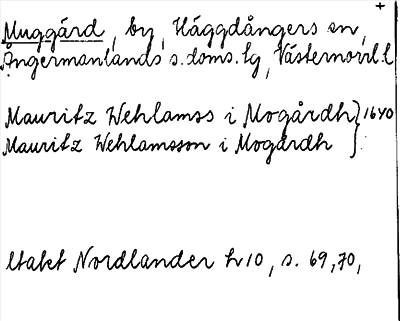 +
Muggård, by, Häggdångers sn,
Ångermanlands s. doms. tg, Västernorrl. l
Mauritz Wehlamss i Mogårdh } 1640
Mauritz Wehlamsson i Mogårdh
Utakt Nordlander h 10, s. 69, 70,